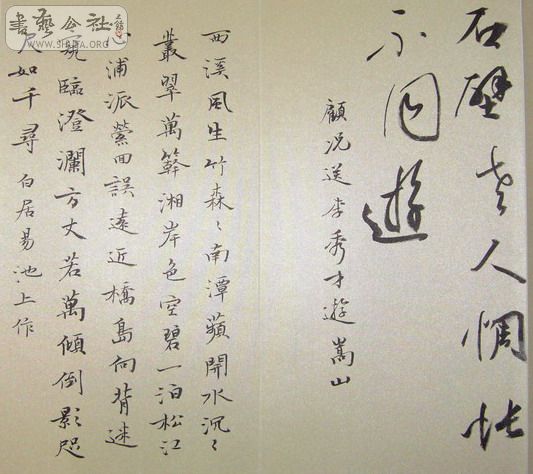 石壁老人惆悵
不同遊
顧況送李秀才遊嵩山
西溪風生竹森〻南潭蘋開水沉〻
叢翠萬竿湘岸色空碧一泊松江
心浦派縈回誤遠近橋島向背迷
窺臨澄瀾方丈若萬傾倒影咫
尺如千尋白居易池上作
書藝公社
WWW.SHUFA.ORG